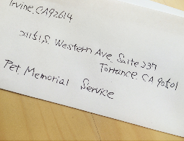 Irvine, CA 92614
21151 S. Western Ave Suite 237
Torrance, CA 90501
Pet Memorial Service